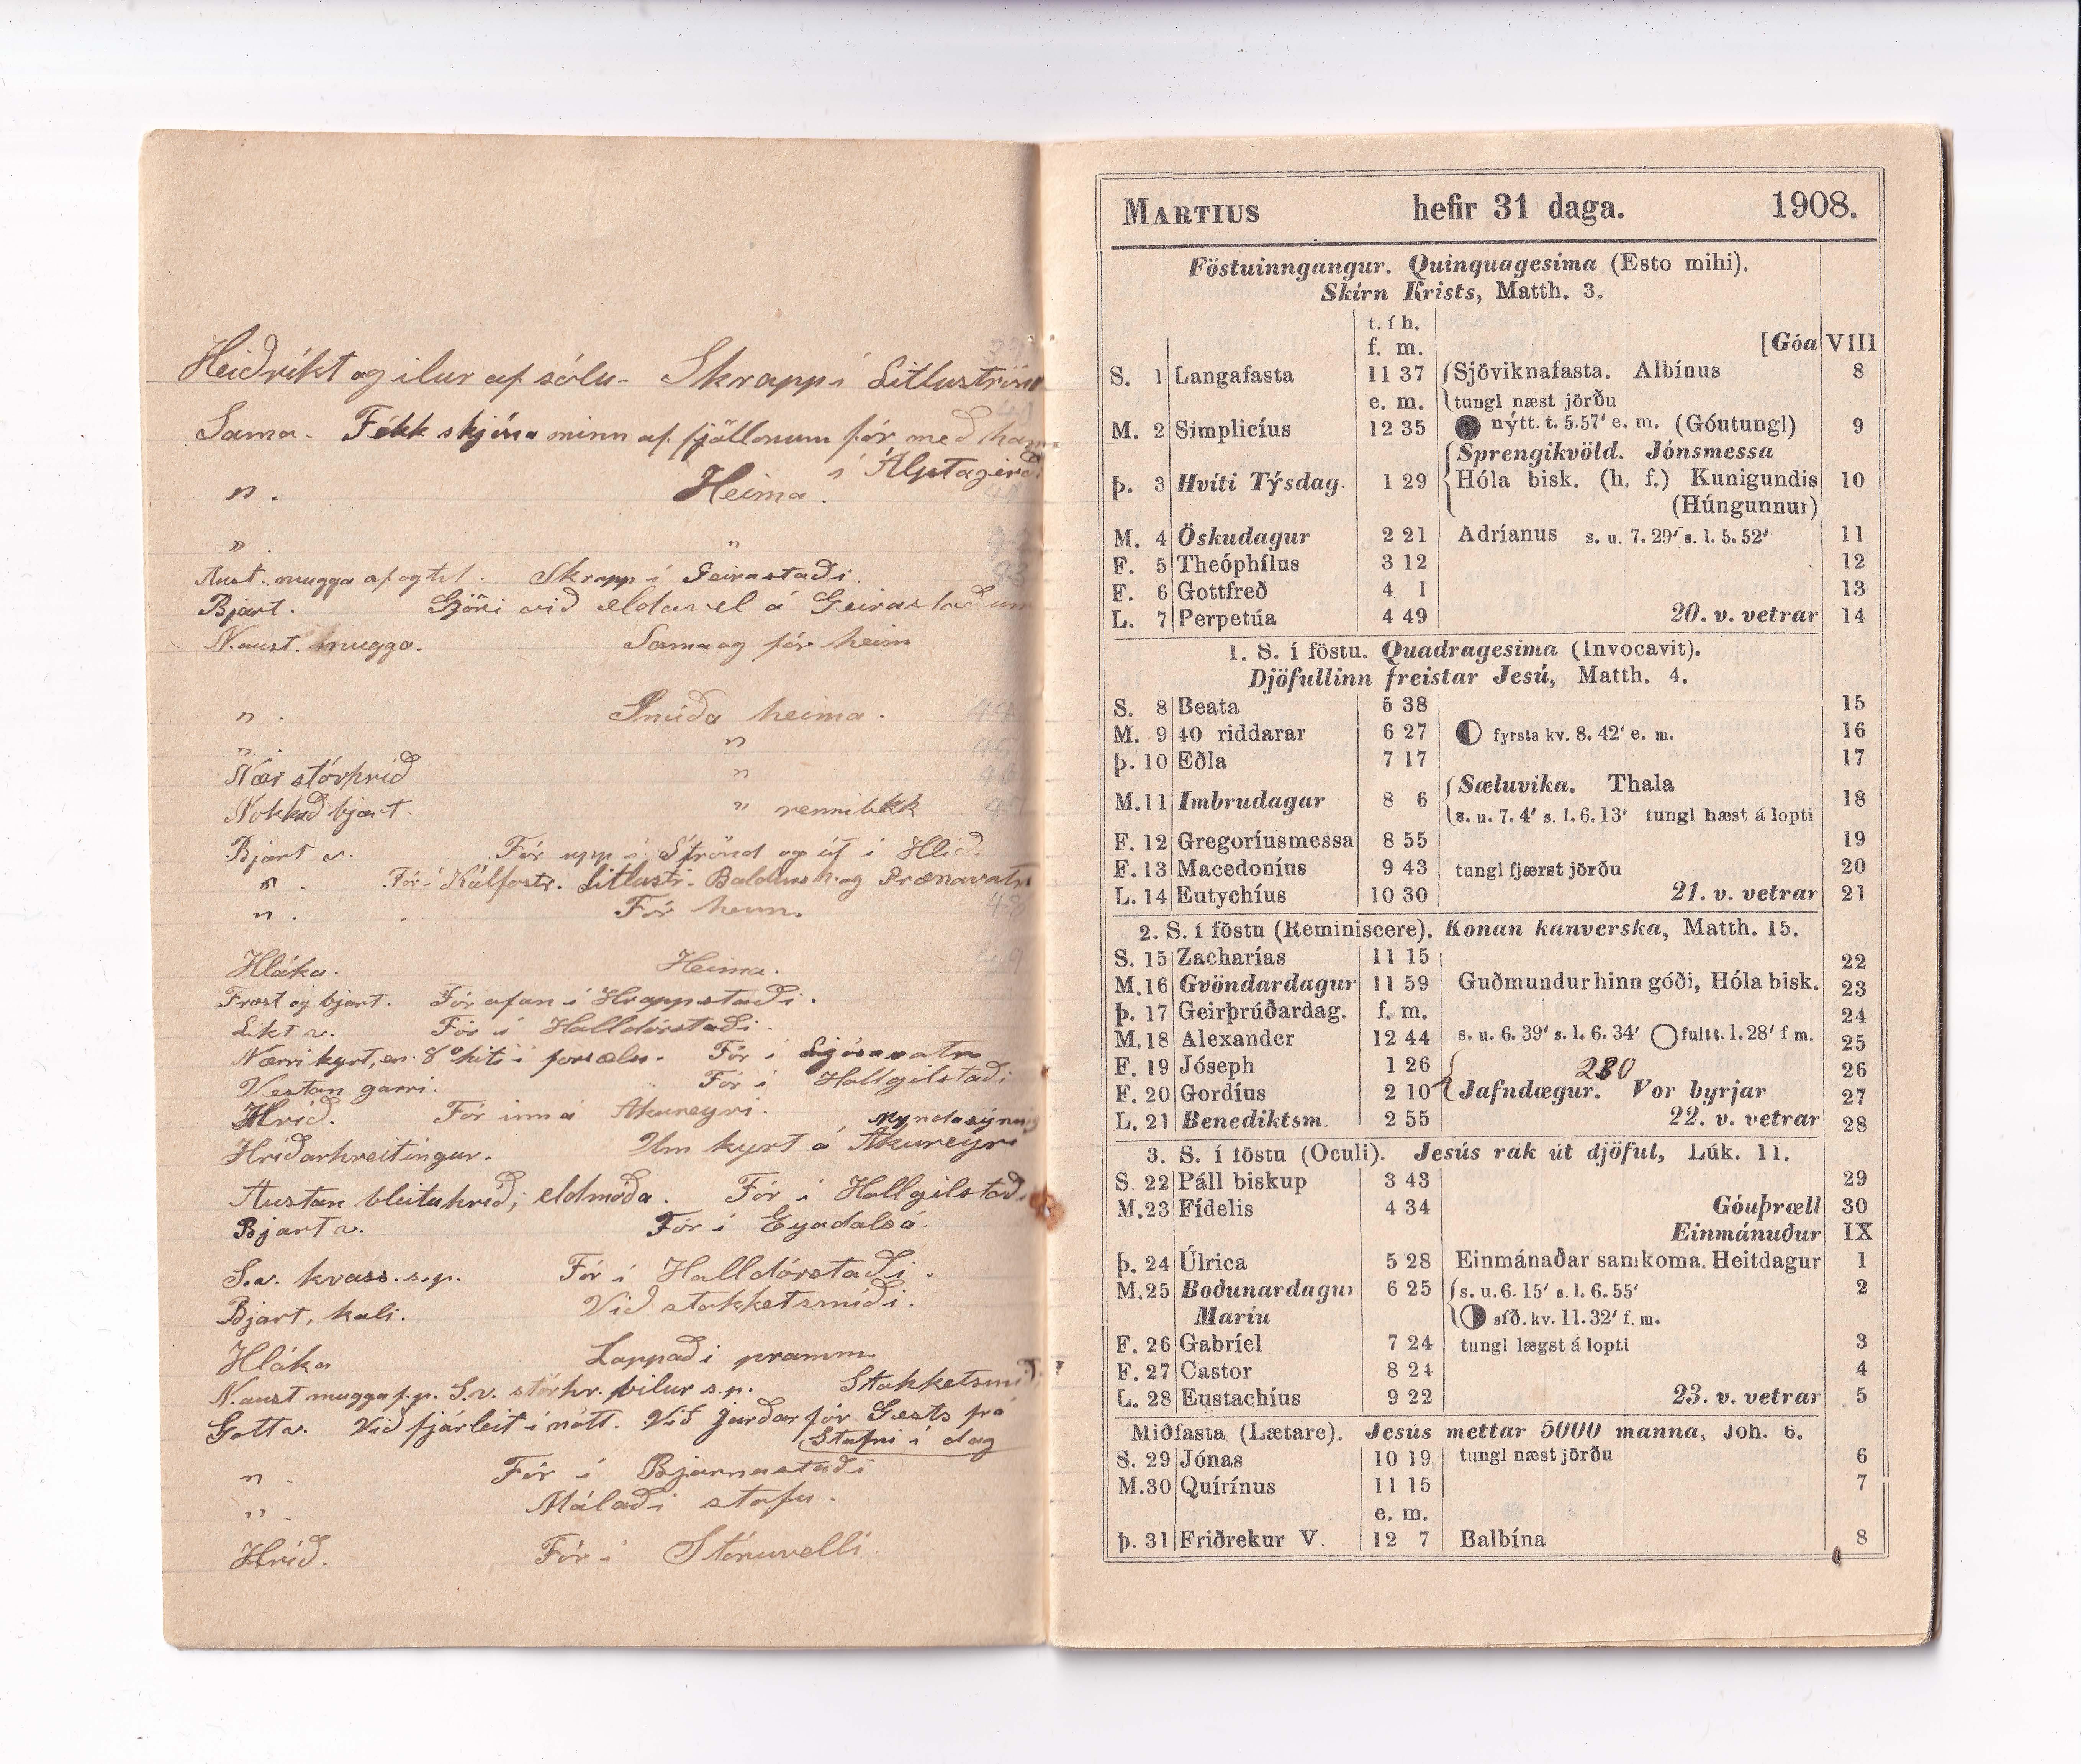 Heiðríkt og ilur af sólu - Skrapp í Litluströnd
Sama. Fékk skjóna minn af fjöllonum fór með han
í Álptagerði
" . Heima.
" . "
Aust. mugga af og til. Skrapp í Geirastaði.
Bjart. Gjöri við eldavel á Geirastaðum
N.aust. mugga. Sama og fór heim
" . Smíða heima.
" . "
Nær stórhríð "
Nokkuð bjart. " rennibekk
Bjart v. Fór upp í Strönd og út í Hlíð.
" . Fór í Kálfastr. Litlustr. Baldurs h. og Grænavatn
" . Fór heim.
Hláka. Heima.
Frost og bjart. Fór ofan í Hrappstaði.
Líkt v. Fór í Halldórstaði.
Nærri kyrt, en 8° hiti í forsælu. Fór í Ljósavatn
Vestan garri. Fór í Hallgilstaði
Hríð. Fór inn á Akureyri. Myndasýning
Hríðarhreitingur. Um kyrt á Akureyri
Austan bleituhríð; eldmóða. Fór í Hallgilstaði
Bjart v. Fór í Eyadalsá.
S.v. kvass. s.p. Fór í Halldórstaði.
Bjart, kali. Við stakketsmíði.
Hláka Lappaði pramm
N.aust mugga f.p. S.v. stórhr. bilur s.p. Stakketsmíði
Gott v. Við fjárleit í nótt. Við jarðarför Gests frá
Stafni í dag
" . Fór í Bjarnastaði
" . Málaði stofu.
Hríð. Fór í Stóruvelli.
MARTIUS hefir 31 daga. 1908.
Föstuinngangur. Quinquagesima (Esto mihi).
Skírn Krists, Matth. 3.
t. í h.
f. m. [Góa VIII
S. 1 Langafasta 11 37 Sjöviknafasta. Albínus 8
e. m. tungl næst jörðu
M. 2 Simplicíus 12 35 nýtt. t. 5.57' e. m. (Góutungl) 9
Sprengikvöld. Jónsmessa
þ. 3 Hvíti Týsdag. 1 29 Hóla bisk. (h. f.) Kunigundis 10
(Húngunnur)
M. 4 Öskudagur 2 21 Adríanus s. u. 7. 29' s. l. 5. 52' 11
F. 5 Theóphílus 3 12 12
F. 6 Gottfreð 4 1 13
L. 7 Perpetúa 4 49 20. v. vetrar 14
1. S. í föstu. Quadragesima (Invocavit).
Djöfullinn freistar Jesú, Matth. 4.
S. 8 Beata 5 38 15
M. 9 40 riddarar 6 27 fyrsta kv. 8. 42' e. m. 16
þ. 10 Eðla 7 17 17
Sæluvika. Thala
M. 11 Imbrudagar 8 6 18
s. u. 7. 4' s. l. 6. 13' tungl hæst á lopti
F. 12 Gregoríusmessa 8 55 19
F. 13 Macedoníus 9 43 tungl fjærst jörðu 20
L. 14 Eutychíus 10 30 21. v. vetrar 21
2. S. í föstu (Reminiscere). Konan kanverska, Matth. 15.
S. 15 Zacharías 11 15 22
M. 16 Gvöndardagur 11 59 Guðmundur hinn góði, Hóla bisk. 23
þ. 17 Geirþrúðardag. f. m. 24
M. 18 Alexander 12 44 s. u. 6. 39' s. l. 6. 34' fullt t. 1. 28' f. m. 25
F. 19 Jóseph 1 26 280 26
F. 20 Gordíus 2 10 Jafndægur. Vor byrjar 27
L. 21 Benediktsm. 2 55 22. v. vetrar 28
3. S. í föstu (Oculi). Jesús rak út djöful, Lúk. 11.
S. 22 Páll biskup 3 43 29
M. 23 Fídelis 4 34 Góuþræll 30
Einmánuður IX
þ. 24 Úlrica 5 28 Einmánaðar samkoma. Heitdagur 1
M. 25 Boðunardagur 6 25 s. u. 6. 15' s. l. 6. 55' 2
Maríu síð. kv. 11. 32' f. m.
F. 26 Gabríel 7 24 tungl lægst á lopti 3
F. 27 Castor 8 24 4
L. 28 Eustachíus 9 22 23. v. vetrar 5
Miðfasta (Lætare). Jesús mettar 5000 manna, Joh. 6.
S. 29 Jónas 10 19 tungl næst jörðu 6
M. 30 Quírínus 11 15 7
e. m.
þ. 31 Friðrekur V. 12 7 Balbína 8